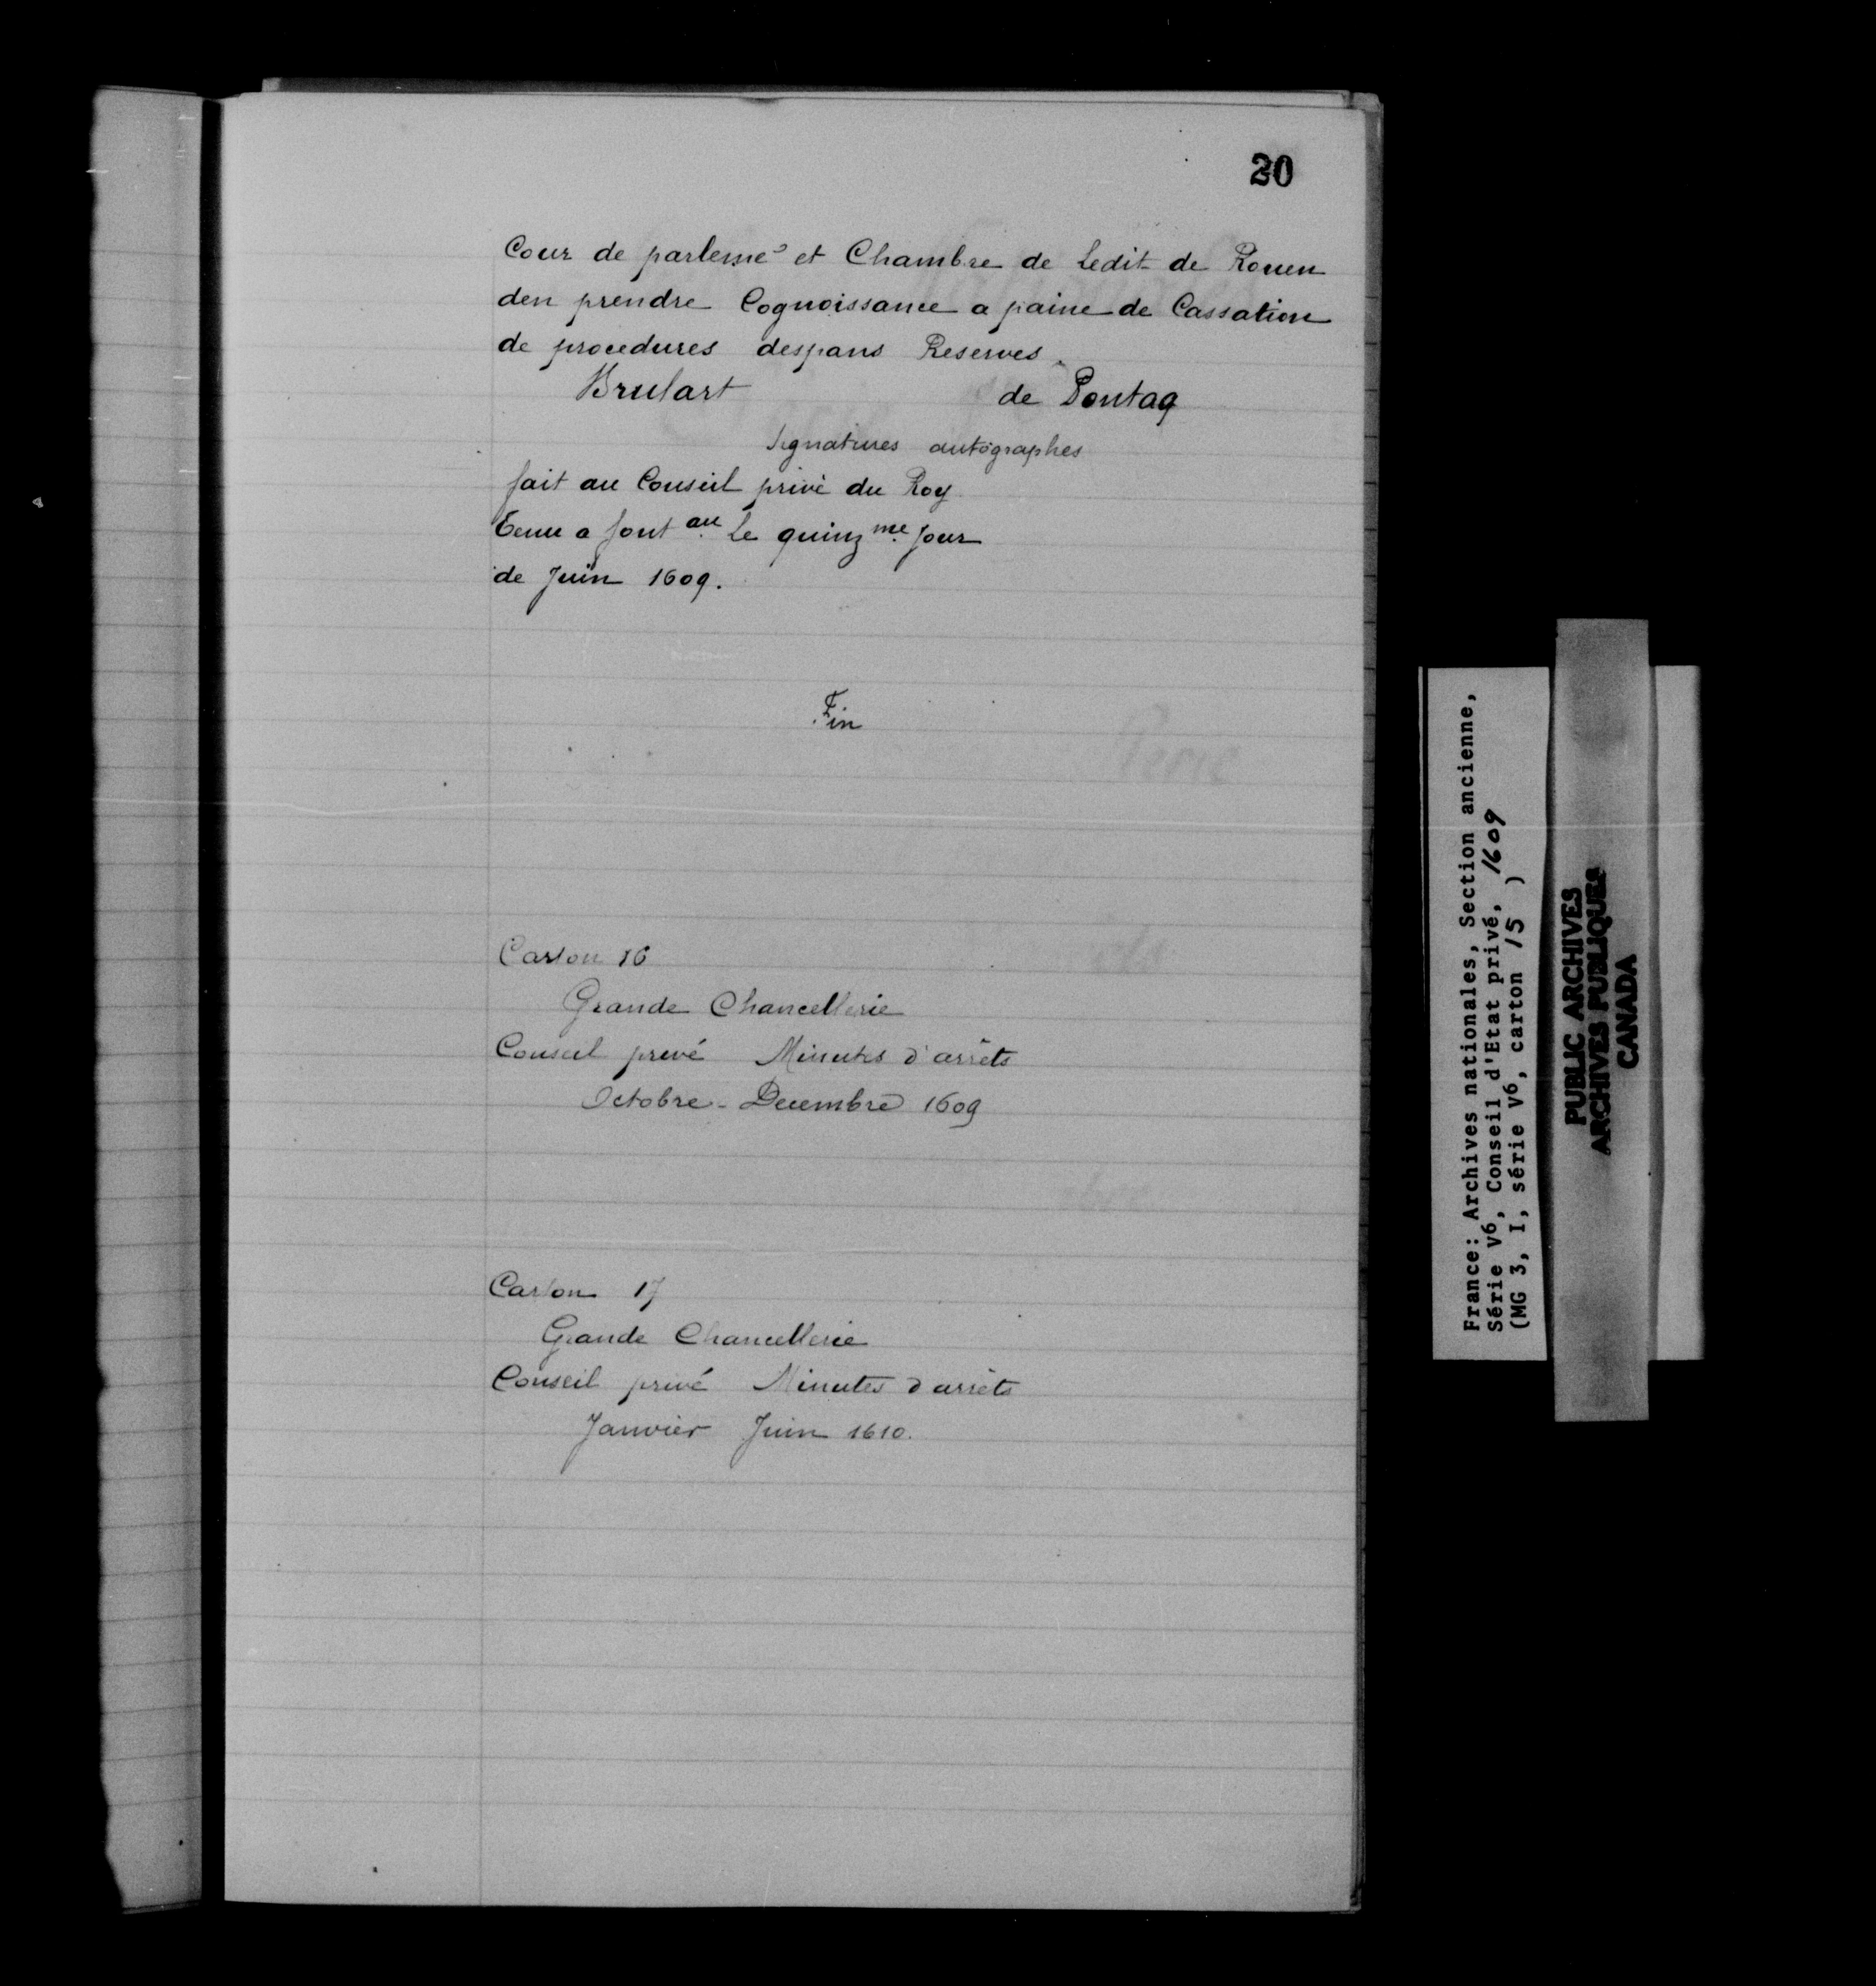 20
Cour de parleme et Chambre de Ledit de Rouen
den prendre Cognoissance a paine de Cassation
de procedures despans Reserves.
Brulart de Pontaq
Signatures autographes
fait au Conseil privé du Roy
Tenu a font au. Le quinz me. Jour
de Juin 1609.
Fin
Carton 16
Grande Chancellerie
Conseil privé Minutes d'arrêts
Octobre - Decembre 1609
Carton 17
Grande Chancellerie
Conseil privé Minutes d'arrêts
Janvier Juin 1610.
France: Archives nationales, Section ancienne,
Série V6, Conseil d'Etat privé, 1609
(MG 3, I, série V6, carton 15 )
PUBLIC ARCHIVES
ARCHIVES PUBLIQUES
CANADA